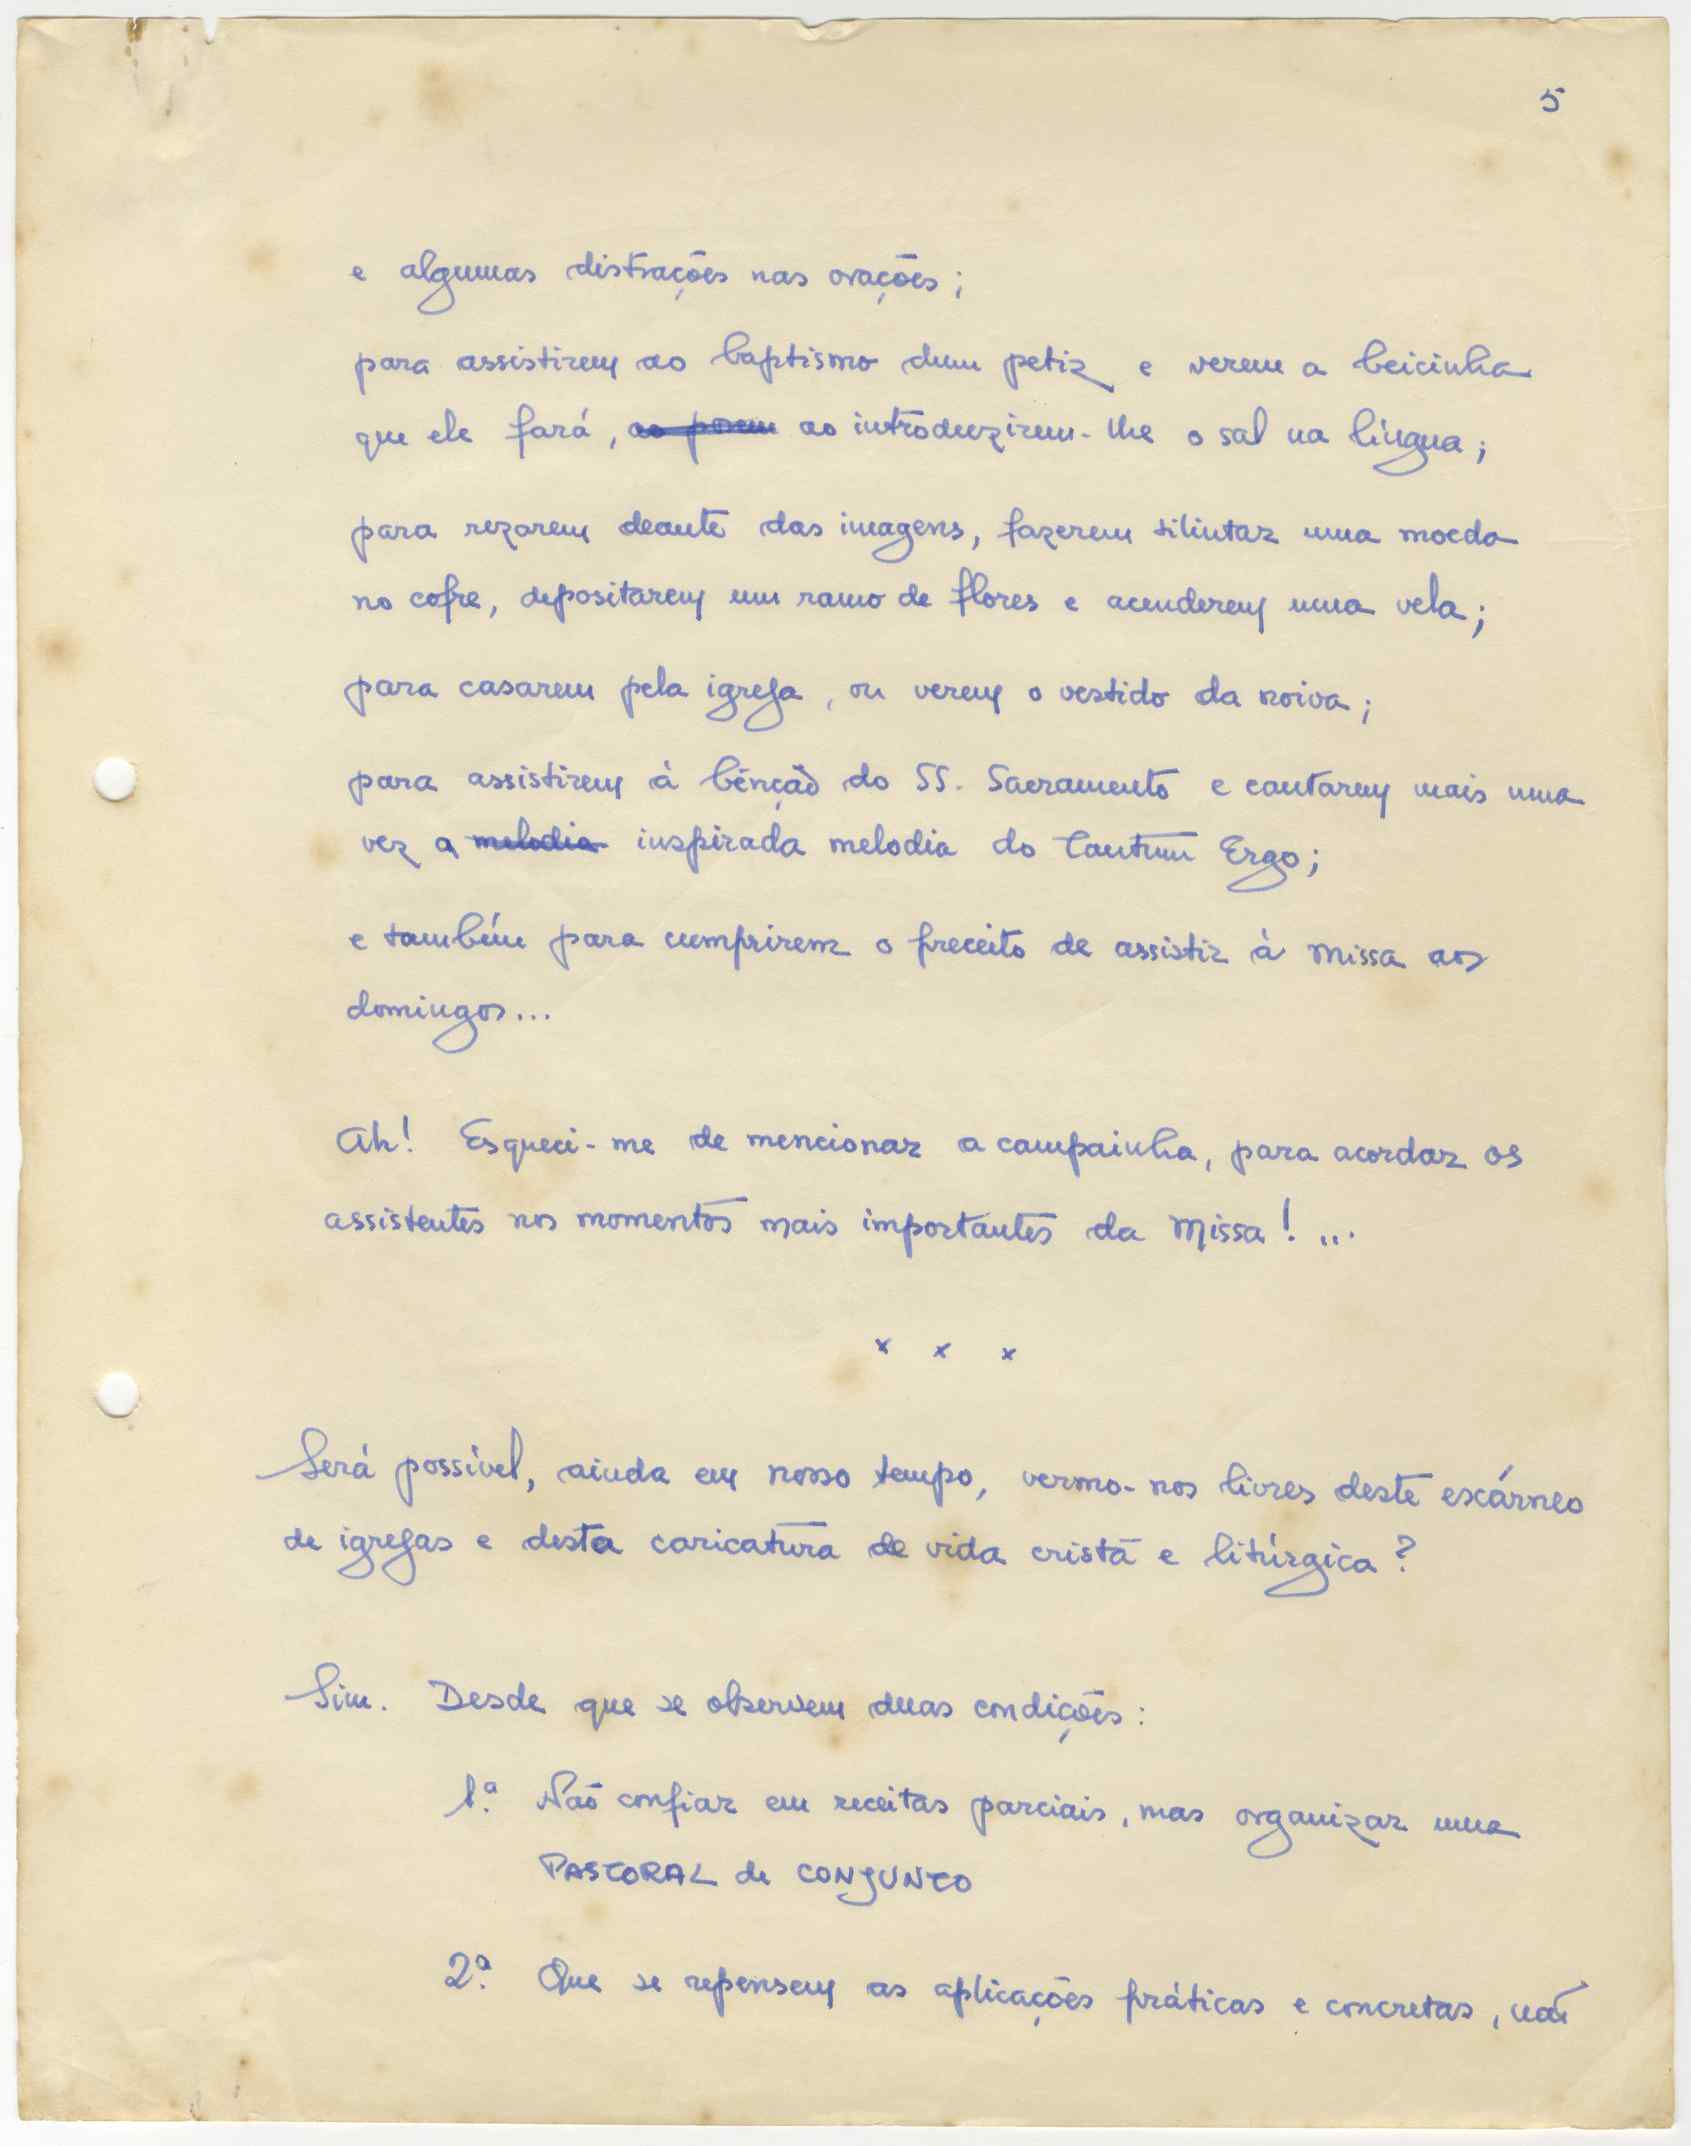 5
e algumas distrações nas orações;
para assistirem ao baptismo dum petiz e verem a beicinha
que ele fará, ao porem ao introduzirem-lhe o sal na língua;
para rezarem deante das imagens, fazerem tilintar uma moeda
no cofre, depositarem um ramo de flores e acenderem uma vela;
para casarem pela igreja, ou verem o vestido da noiva;
para assistirem à bênção do SS. Sacramento e cantarem mais uma
vez a melodia inspirada melodia do Tantum Ergo;
e também para cumprirem o preceito de assistir à Missa aos
domingos...
Ah! Esqueci-me de mencionar a campainha, para acordar os
assistentes nos momentos mais importantes da Missa! ...
x x x
Será possível, ainda em nosso tempo, vermo-nos livres deste escárneo
de igrejas e desta caricatura de vida cristã e litúrgica?
Sim. Desde que se observem duas condições:
1.ª Não confiar em receitas parciais, mas organizar uma
PASTORAL de CONJUNTO
2.ª Que se repensem as aplicações práticas e concretas, não